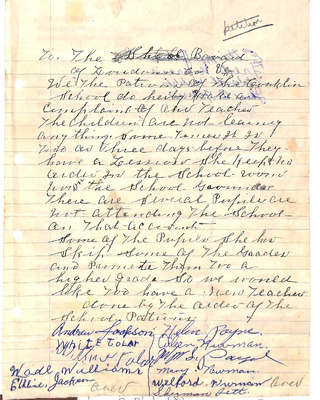 petition
To The School Board
of Loudoun Co. Va
We The Patrons of The Conklin
School do hereby make any
complaint of our Teacher
The children are not learning
any thing some Times it is
Two or Three days before They
have a Lesson She keeps no
order in the School room
nor on the School Grounds
There are several Pupils are
not attending The School
on That account
Some of The Pupils She
Skip some of The Grades
and Promote Them Too a
higher Grade So we would
like Too have a New Teacher
done by The order of The
School Patrons
Andrew Jackson
Helen Payne
White Tolar
Newman
Tolar
Wade Williams
Mary Newman
Eddie Jackson
Wilford Newman
over
over
Sherman